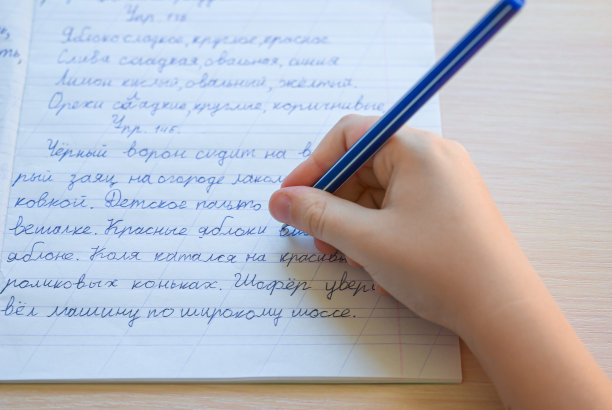 Упр.
ть,
Яблоко сладкое, круглое, красное
Слива сладкая, овальная, синяя
Лимон кислый, овальный, жёлтый.
Орехи сладкие, круглые, коричневые
Упр. 146.
Чёрный ворон сидит на в
рый заяц на огороде лаком
ковкой. Детское пальто
вешалке. Красные яблоки
яблоне. Коля катался на красив
роликовых коньках. Шофёр увер
вёл машину по широкому шоссе.